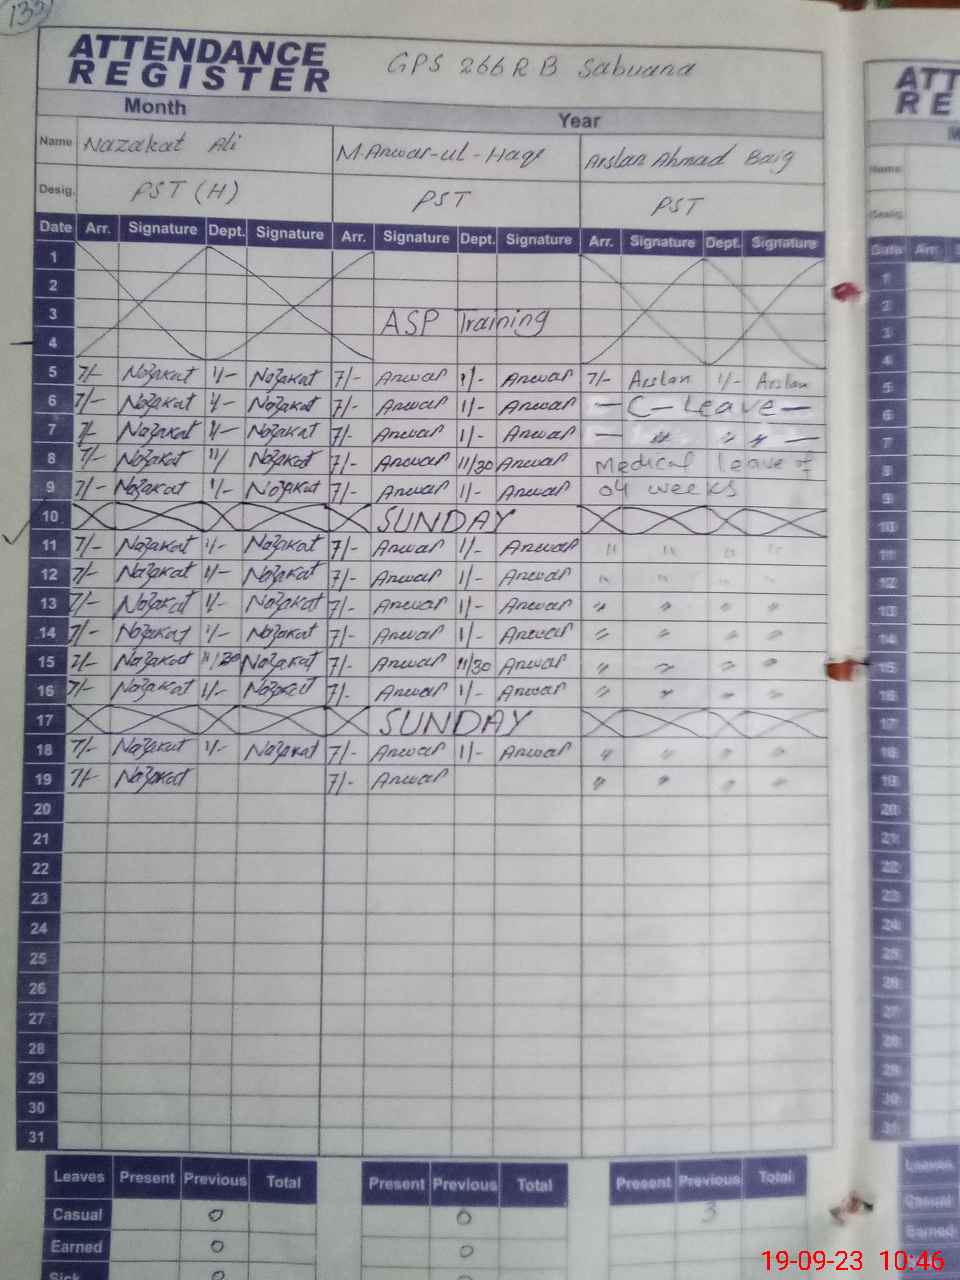 133
ATTENDANCE
REGISTER
GPS 266 R B Sabuana
Month Year
Name Nazakat Ali M. Anwar-ul-Haqe Arslan Ahmad Baig
Desig. PST (H) PST PST
Date Arr. Signature Dept. Signature Arr. Signature Dept. Signature Arr. Signature Dept. Signature
1
2
3 ASP Training
4
5 7/- Nazakat 1/- Nazakat 7/- Anwar 1/- Anwar 7/- Arslan 1/- Arslan
6 7/- Nazakat 1/- Nazakat 7/- Anwar 1/- Anwar - C - Leave -
7 7/- Nazakat 1/- Nazakat 7/- Anwar 1/- Anwar - " " " -
8 7/- Nazakat 11/ Nazakat 7/- Anwar 11/30 Anwar Medical leave of
9 7/- Nazakat 1/- Nazakat 7/- Anwar 1/- Anwar 04 weeks
10 SUNDAY
11 7/- Nazakat 1/- Nazakat 7/- Anwar 1/- Anwar " " " "
12 7/- Nazakat 1/- Nazakat 7/- Anwar 1/- Anwar " " " "
13 7/- Nazakat 1/- Nazakat 7/- Anwar 1/- Anwar " " " "
14 7/- Nazakat 1/- Nazakat 7/- Anwar 1/- Anwar " " " "
15 7/- Nazakat 11/30 Nazakat 7/- Anwar 11/30 Anwar " " " "
16 7/- Nazakat 1/- Nazakat 7/- Anwar 1/- Anwar " " " "
17 SUNDAY
18 7/- Nazakat 1/- Nazakat 7/- Anwar 1/- Anwar " " " "
19 7/- Nazakat 7/- Anwar " " " "
20
21
22
23
24
25
26
27
28
29
30
31
Leaves Present Previous Total Present Previous Total Present Previous Total
Casual 0 0 3
Earned 0 0
Sick 0
ATT
RE
Name
Desig.
Date Arr.
1
2
3
4
5
6
7
8
9
10
11
12
13
14
15
16
17
18
19
20
21
22
23
24
25
26
27
28
29
30
31
Leaves
Casual
Earned
19-09-23 10:46